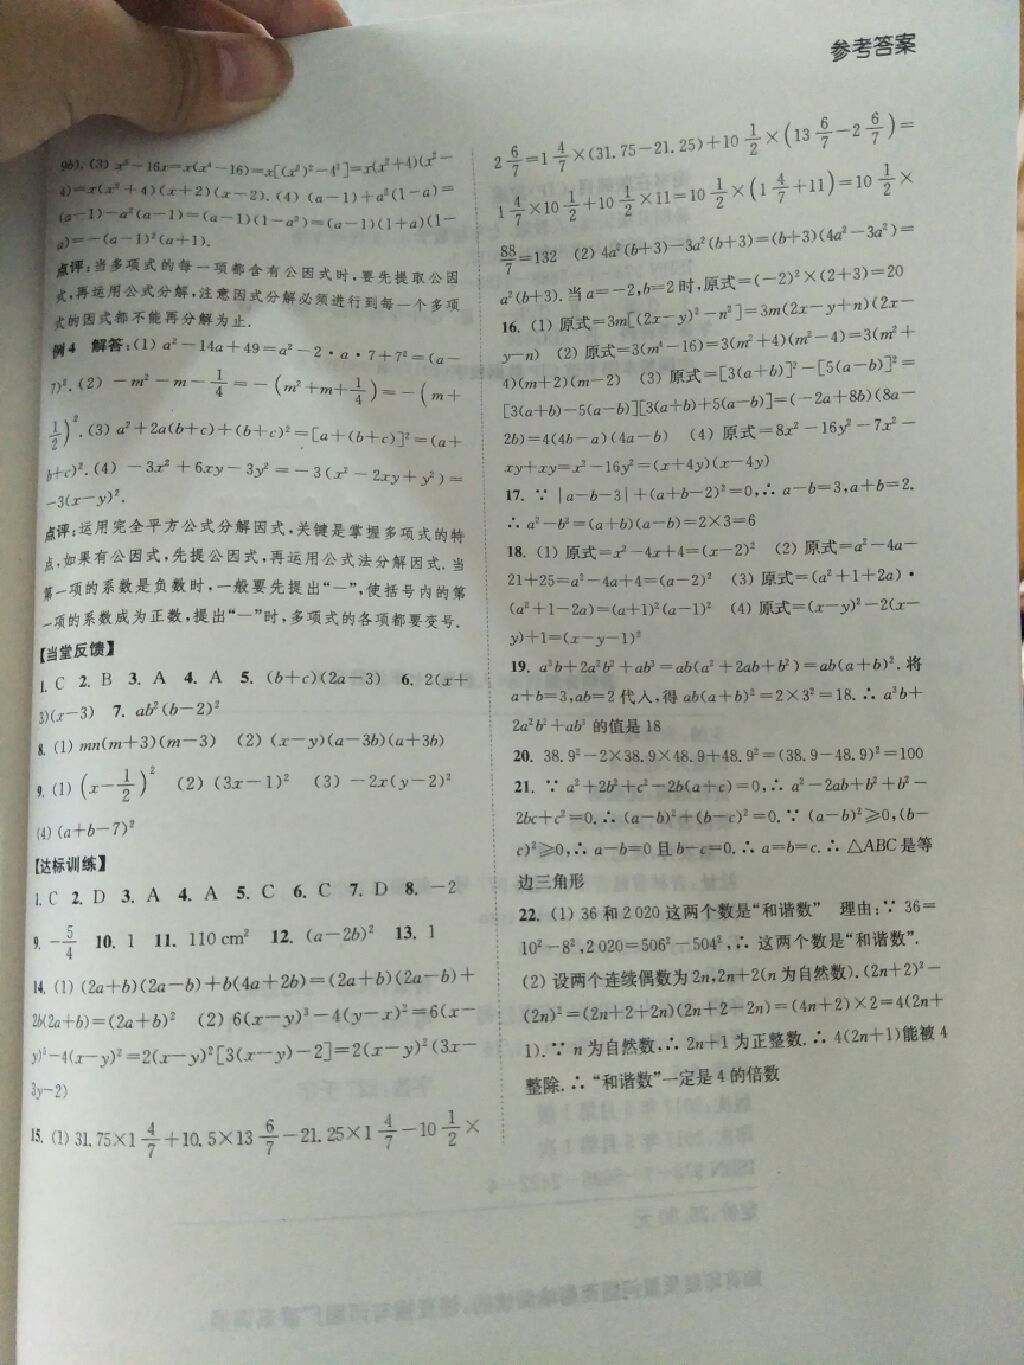 参考答案
9b). (3) x⁵-16x=x(x⁴-16)=x[(x²)²-4²]=x(x²+4)(x²-
4)=x(x²+4)(x+2)(x-2). (4) (a-1)+a²(1-a)=
(a-1)-a²(a-1)=(a-1)(1-a²)=(a-1)(1+a)(1-
a)=-(a-1)²(a+1).
点评:当多项式的每一项都含有公因式时,要先提取公因
式,再运用公式分解,注意因式分解必须进行到每一个多项
式的因式都不能再分解为止.
例4 解答:(1) a²-14a+49=a²-2·a·7+7²=(a-
7)². (2) -m²-m-1/4=-(m²+m+1/4)=-(m+
1/2)². (3) a²+2a(b+c)+(b+c)²=[a+(b+c)]²=(a+
b+c)². (4) -3x²+6xy-3y²=-3(x²-2xy+y²)=
-3(x-y)².
点评:运用完全平方公式分解因式,关键是掌握多项式的特
点,如果有公因式,先提公因式,再运用公式法分解因式.当
第一项的系数是负数时,一般要先提出“-”,使括号内的第
一项的系数成为正数,提出“-”时,多项式的各项都要变号.
【当堂反馈】
1. C 2. B 3. A 4. A 5. (b+c)(2a-3) 6. 2(x+
3)(x-3) 7. ab²(b-2)²
8. (1) mn(m+3)(m-3) (2) (x-y)(a-3b)(a+3b)
9. (1) (x-1/2)² (2) (3x-1)² (3) -2x(y-2)²
(4) (a+b-7)²
【达标训练】
1. C 2. D 3. A 4. A 5. C 6. C 7. D 8. -2
9. -5/4 10. 1 11. 110 cm² 12. (a-2b)² 13. 1
14. (1) (2a+b)(2a-b)+b(4a+2b)=(2a+b)(2a-b)+
2b(2a+b)=(2a+b)² (2) 6(x-y)³-4(y-x)²=6(x-
y)³-4(x-y)²=2(x-y)²[3(x-y)-2]=2(x-y)²(3x-
3y-2)
15. (1) 31.75×1 4/7+10.5×13 6/7-21.25×1 4/7-10 1/2×
2 6/7=1 4/7×(31.75-21.25)+10 1/2×(13 6/7-2 6/7)=
1 4/7×10 1/2+10 1/2×11=10 1/2×(1 4/7+11)=10 1/2×
88/7=132 (2) 4a²(b+3)-3a²(b+3)=(b+3)(4a²-3a²)=
a²(b+3).当a=-2,b=2时,原式=(-2)²×(2+3)=20
16. (1) 原式=3m[(2x-y)²-n²]=3m(2x-y+n)(2x-
y-n) (2) 原式=3(m⁴-16)=3(m²+4)(m²-4)=3(m²+
4)(m+2)(m-2) (3) 原式=[3(a+b)]²-[5(a-b)]²=
[3(a+b)-5(a-b)][3(a+b)+5(a-b)]=(-2a+8b)(8a-
2b)=4(4b-a)(4a-b) (4) 原式=8x²-16y²-7x²-
xy+xy=x²-16y²=(x+4y)(x-4y)
17. ∵ |a-b-3|+(a+b-2)²=0,∴ a-b=3,a+b=2.
∴ a²-b²=(a+b)(a-b)=2×3=6
18. (1) 原式=x²-4x+4=(x-2)² (2) 原式=a²-4a-
21+25=a²-4a+4=(a-2)² (3) 原式=(a²+1+2a)·
(a²+1-2a)=(a+1)²(a-1)² (4) 原式=(x-y)²-2(x-
y)+1=(x-y-1)²
19. a³b+2a²b²+ab³=ab(a²+2ab+b²)=ab(a+b)².将
a+b=3,ab=2代入,得ab(a+b)²=2×3²=18.∴ a³b+
2a²b²+ab³ 的值是18
20. 38.9²-2×38.9×48.9+48.9²=(38.9-48.9)²=100
21. ∵ a²+2b²+c²-2b(a+c)=0,∴ a²-2ab+b²+b²-
2bc+c²=0.∴ (a-b)²+(b-c)²=0.∵ (a-b)²≥0,(b-
c)²≥0,∴ a-b=0且b-c=0.∴ a=b=c.∴ △ABC是等
边三角形
22. (1) 36和2 020这两个数是“和谐数” 理由:∵ 36=
10²-8²,2 020=506²-504²,∴ 这两个数是“和谐数”.
(2) 设两个连续偶数为2n,2n+2(n为自然数).(2n+2)²-
(2n)²=(2n+2+2n)(2n+2-2n)=(4n+2)×2=4(2n+
1).∵ n为自然数,∴ 2n+1为正整数.∴ 4(2n+1)能被4
整除.∴ “和谐数”一定是4的倍数